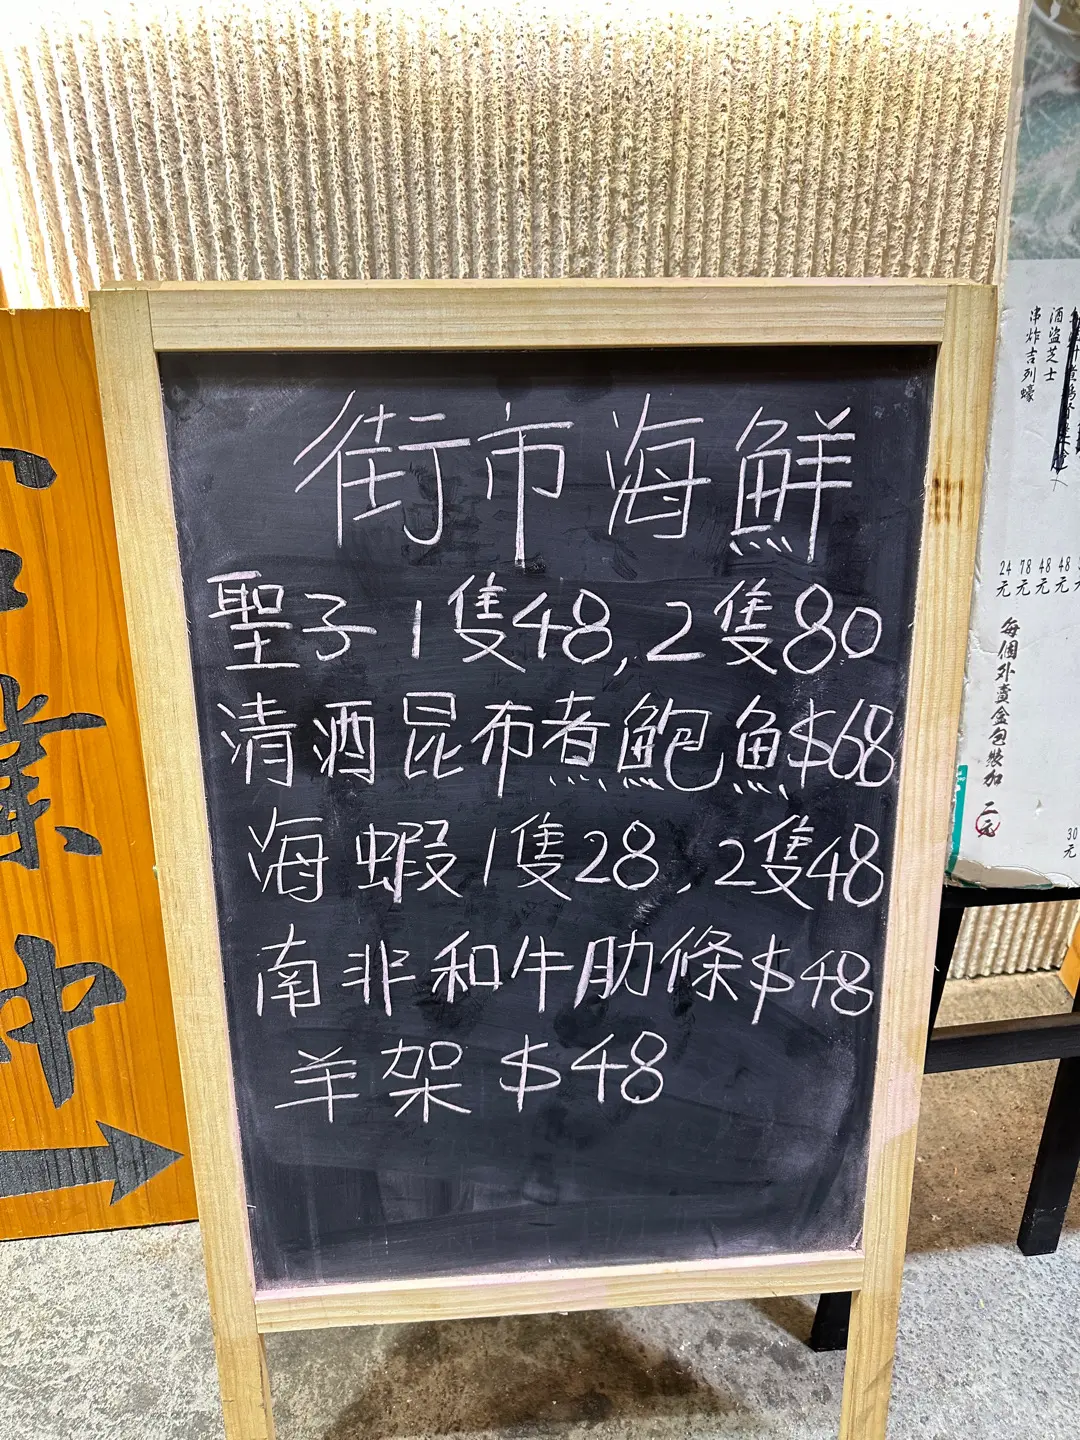 街市海鮮
聖子1隻48,2隻80
清酒昆布煮鮑魚$68
海蝦1隻28,2隻48
南非和牛肋條$48
羊架$48
業中
酒盜芝士
串炸吉列蠔
48元
48元
78元
24元
每個外賣金包裝加二元
30元